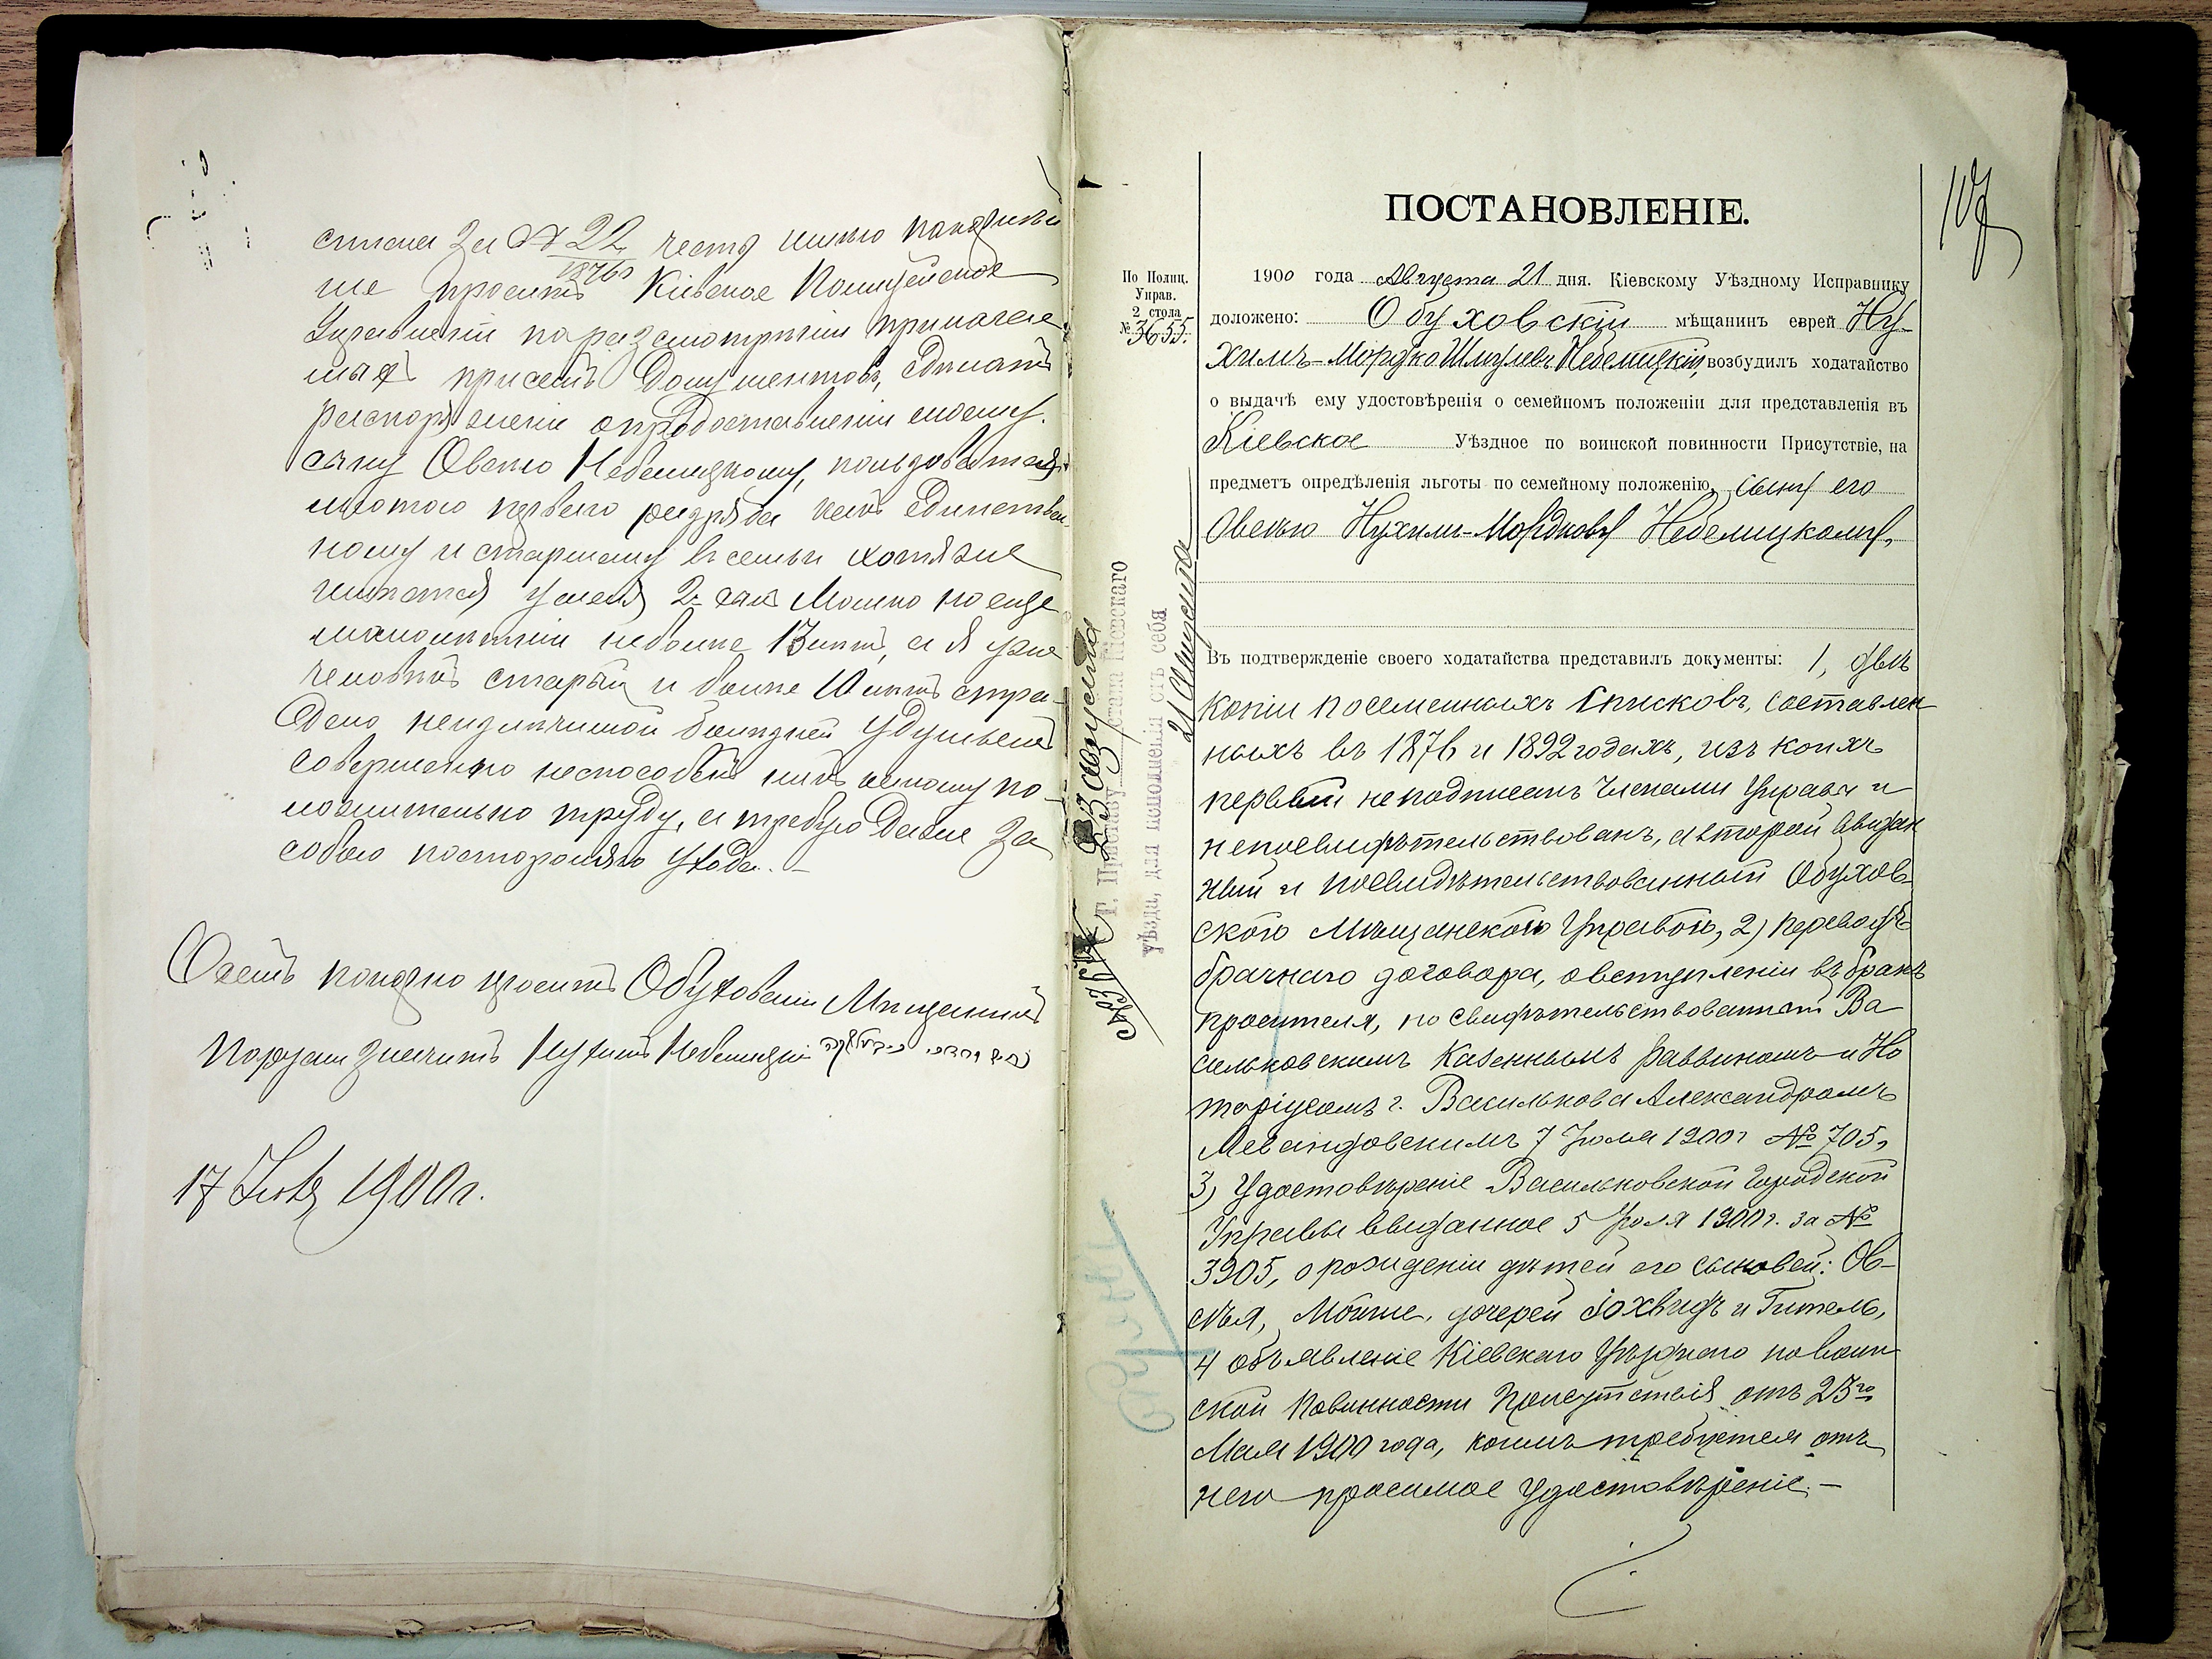 списка за № 22 1876 г честь имею покорнѣй
ше просить Кіевское Полицейское
Управленіи по разсмотрѣніи прилагае
мыхъ присемъ Документовъ, сдѣлать
распоряженіи о предоставленіи моему
сыну Овсѣю Небелицкому, пользоваться
льготою перваго разряда какъ единствен
ному и старшему въ семьи хотя же
читается у меня 2й сынъ Мошко но еще
малолѣтній неболѣе 13 лѣтъ, а я уже
человѣкъ старый и болѣе 10 лѣтъ стра-
даю неизлѣчимой болѣзней Удушьемъ
совершенно неспособенъ къ
положительно труду, а требую Даже за
собою посторонняго Ухода. —
О семъ покорно проситъ Обуховскій Мѣщанинъ
Нухимъ Небелицкій
17 1900 г.
ПОСТАНОВЛЕНІЕ.
107
По Полиц.
Управ.
2 стола
№ 3655.
1900 года Августа 21 дня. Кіевскому Уѣздному Исправнику
доложено: Обуховскій мѣщанинъ еврей Ну-
химъ-Мордко Шмулевъ Небелицкій, возбудилъ ходатайство
о выдачѣ ему удостовѣренія о семейномъ положеніи для представленія въ
Кіевское Уѣздное по воинской повинности Присутствіе, на
предметъ опредѣленія льготы по семейному положенію, сыну его
Овсѣю Нухимъ-Мордкову Небелицкому.
Въ подтвержденіе своего ходатайства представилъ документы: 1, двѣ
копіи посемейныхъ списковъ, составлен
ныхъ въ 1876 и 1892 годахъ, изъ коихъ
первый не подписанъ членами Управы и
не посвидѣтельствованъ, а второй выдан
ный и посвидѣтельствованный Обухов-
ской Мѣщанской Управой, 2) переводъ
брачнаго договора, о вступленіи въ бракъ
просителя, посвидѣтельствованный Ва
сильковскимъ Казеннымъ Раввиномъ и Но
таріусомъ г. Василькова Александромъ
Левандовскимъ 7 Іюля 1900 г № 705,
3) Удостовѣреніе Васильковской Городской
Управы выданное 5 Іюля 1900 г. за №
3905, о рожденіи дѣтей его сыновей: Ов-
сѣя, Мошке, дочерей Іохведъ и Гитель,
4 объявленіе Кіевскаго Уѣзднаго по воин
ской Повинности Присутствія отъ 23го
Мая 1900 года, коимъ требуется отъ
него просимое удостовѣреніе. —
Г. Приставу стана Кіевскаго
уѣзда, для исполненія отъ себя
23 Августа
21 Августа